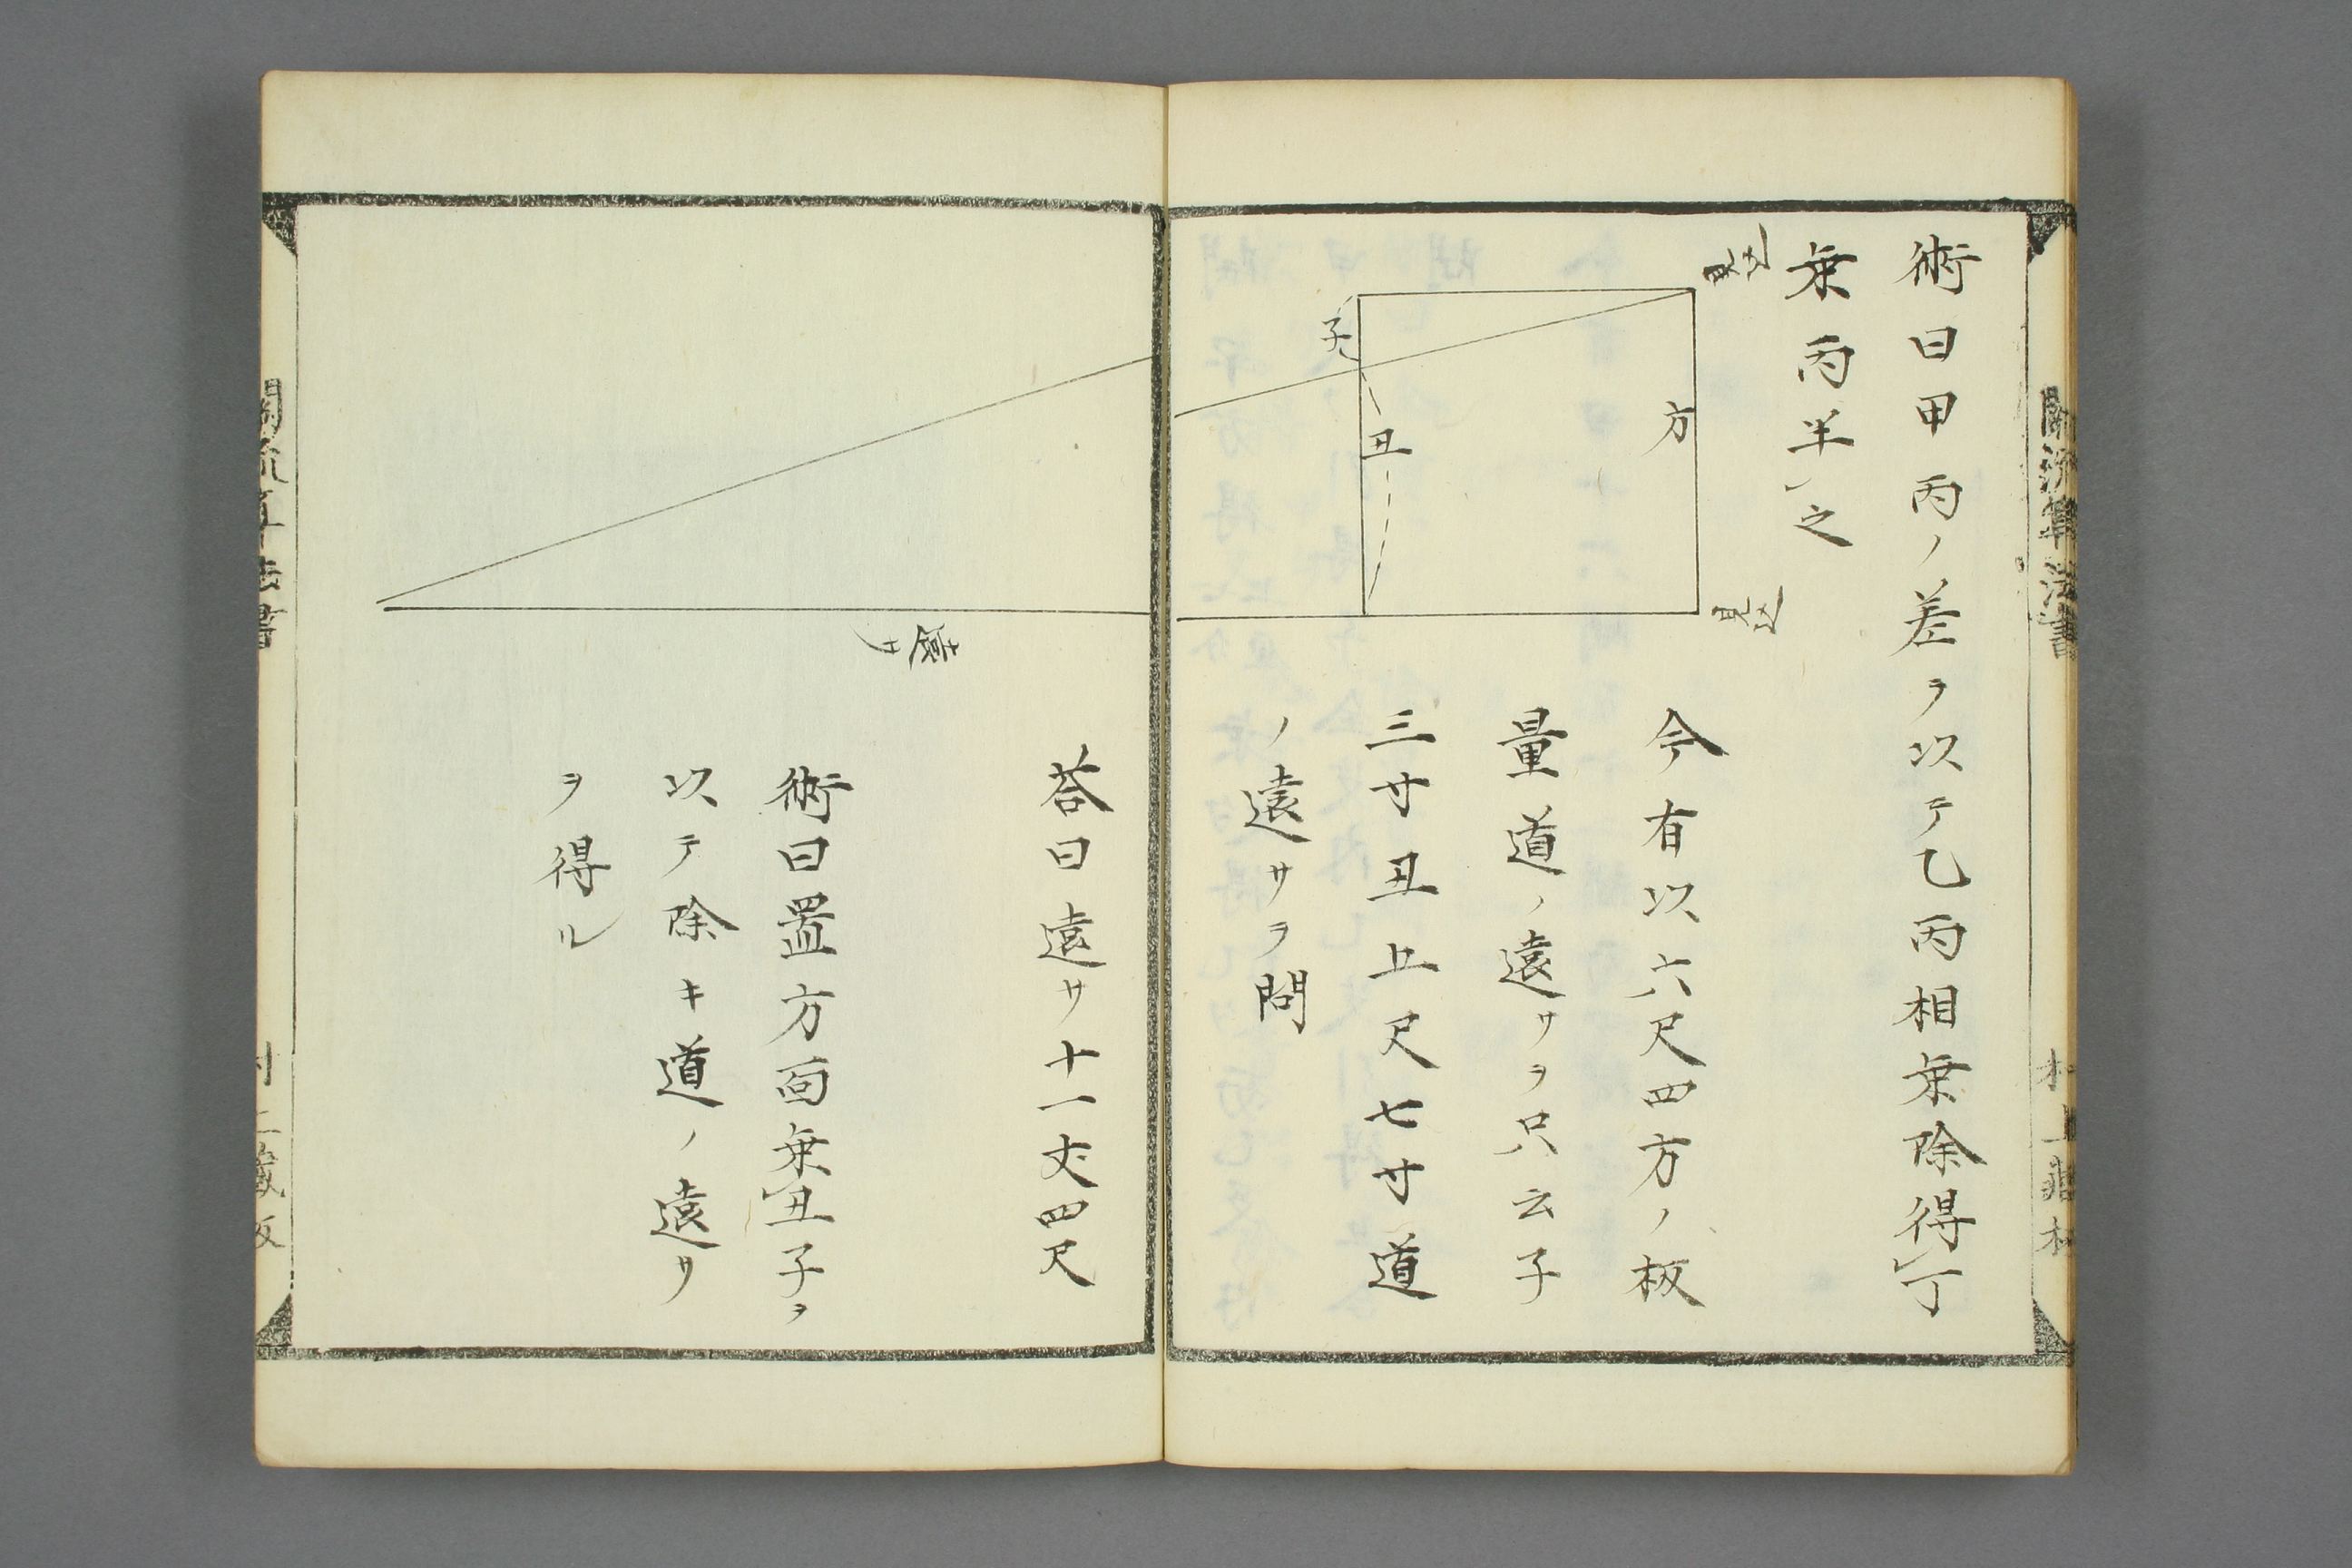 術曰甲丙ノ差ヲ以テ乙丙相乗除得丁
乗丙半之
見込
方
見込
子
丑
今有以六尺四方ノ板
量道ノ遠サヲ只云子
三寸丑五尺七寸道
ノ遠サヲ問
遠サ
答曰遠サ十一丈四尺
術曰置方面乗丑子ヲ
以テ除キ道ノ遠サ
ヲ得ル
關流算法書